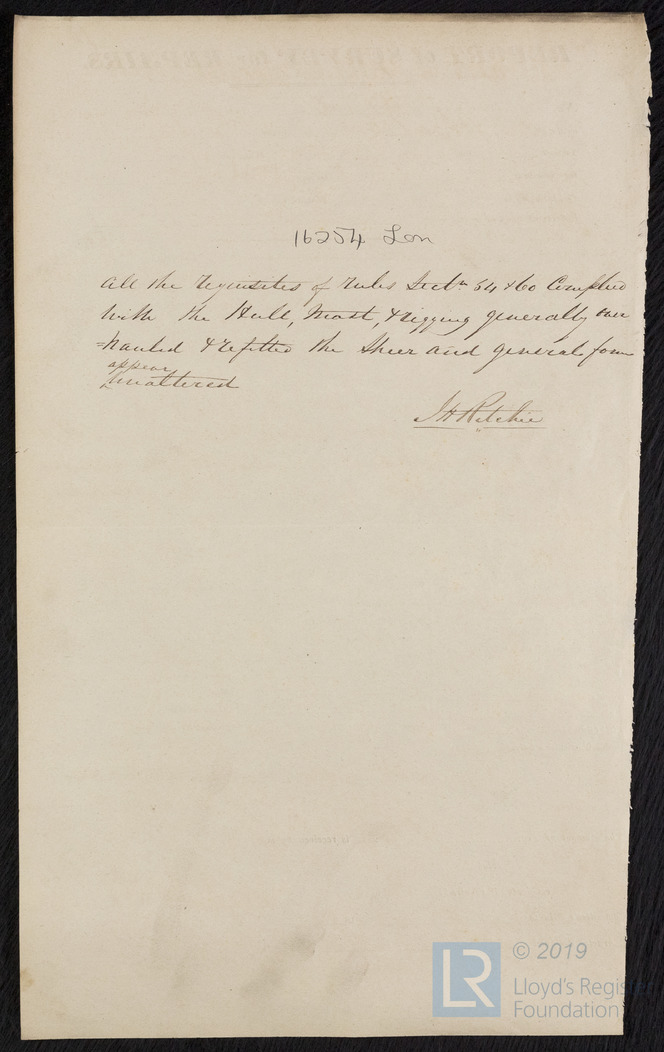 16254 Lon
All the requisites of rules Sectn 54 & 60 Complied
with the Hull, Mast, & rigging generally over
=hauled & refitted the Sheer and general form
appear
unaltered
J H Ritchie
© 2019
LR
Lloyd's Register
Foundation